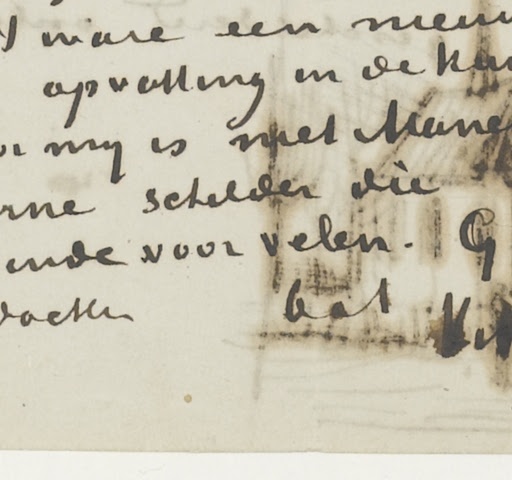 ware een nieuw
opvatting in de kun
my is niet Mane
rne schilder die
ende voor velen. G
bat